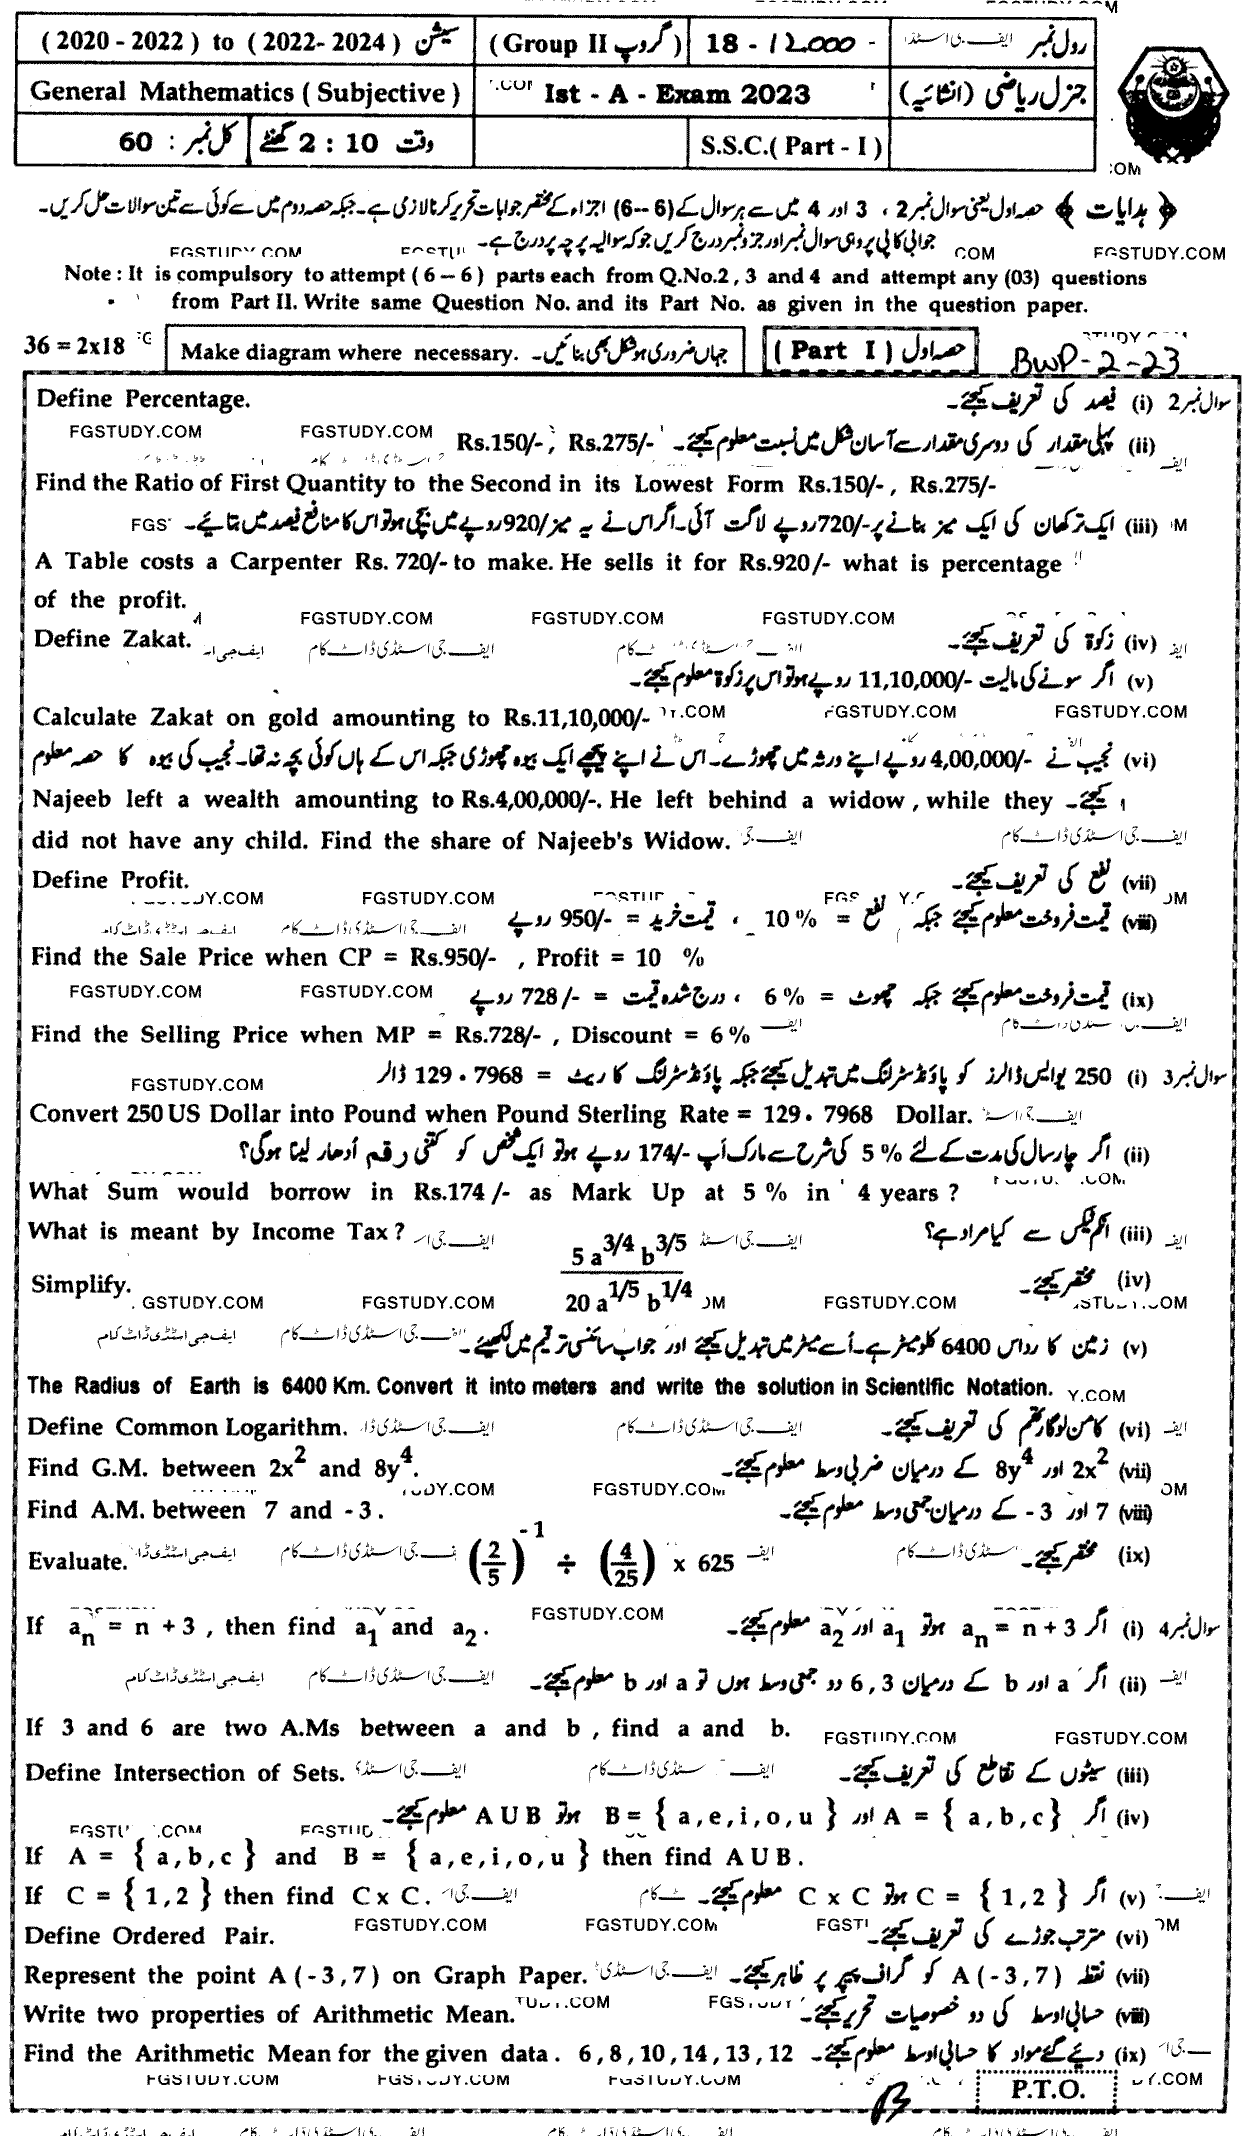 سیشن ( 2020 - 2022 ) to ( 2022- 2024 )
(Group II گروپ)
18 - 12000 -
رول نمبر
General Mathematics ( Subjective )
Ist - A - Exam 2023
جنرل ریاضی (انشائیہ)
وقت 2 : 10 گھنٹے
کل نمبر : 60
S.S.C.( Part - I )
﴿ ہدایات ﴾ حصہ اول یعنی سوال نمبر 2 ، 3 اور 4 میں سے ہر سوال کے (6 – 6) اجزاء کے مختصر جوابات تحریر کرنا لازمی ہے۔ جبکہ حصہ دوم میں سے کوئی سے تین سوالات حل کریں۔
جوابی کاپی پر وہی سوال نمبر اور جزو نمبر درج کریں جو کہ سوالیہ پرچہ پر درج ہے۔
Note : It is compulsory to attempt ( 6 – 6 ) parts each from Q.No.2 , 3 and 4 and attempt any (03) questions
from Part II. Write same Question No. and its Part No. as given in the question paper.
36 = 2x18
Make diagram where necessary. جہاں ضروری ہو شکل بھی بنائیں۔
( Part I ) حصہ اول
BWP-2-23
Define Percentage. سوال نمبر 2 (i) فیصد کی تعریف کیجئے۔
(ii) پہلی مقدار کی دوسری مقدار سے آسان شکل میں نسبت معلوم کیجئے۔ Rs.150/- , Rs.275/-
Find the Ratio of First Quantity to the Second in its Lowest Form Rs.150/- , Rs.275/-
(iii) ایک ترکھان کی ایک میز بنانے پر -/720 روپے لاگت آئی۔ اگر اس نے یہ میز /920 روپے میں بیچی ہو تو اس کا منافع فیصد میں بتائیے۔
A Table costs a Carpenter Rs. 720/- to make. He sells it for Rs.920/- what is percentage
of the profit.
Define Zakat. (iv) زکوٰۃ کی تعریف کیجئے۔
(v) اگر سونے کی مالیت -/11,10,000 روپے ہو تو اس پر زکوٰۃ معلوم کیجئے۔
Calculate Zakat on gold amounting to Rs.11,10,000/-
(vi) نجیب نے -/4,00,000 روپے اپنے ورثہ میں چھوڑے۔ اس نے اپنے پیچھے ایک بیوہ چھوڑی جبکہ اس کے ہاں کوئی بچہ نہ تھا۔ نجیب کی بیوہ کا حصہ معلوم
Najeeb left a wealth amounting to Rs.4,00,000/-. He left behind a widow , while they کیجئے۔
did not have any child. Find the share of Najeeb's Widow.
Define Profit. (vii) نفع کی تعریف کیجئے۔
(viii) قیمت فروخت معلوم کیجئے جبکہ نفع = 10 % ، قیمت خرید = -/950 روپے
Find the Sale Price when CP = Rs.950/- , Profit = 10 %
(ix) قیمت فروخت معلوم کیجئے جبکہ چھوٹ = 6 % ، درج شدہ قیمت = -/728 روپے
Find the Selling Price when MP = Rs.728/- , Discount = 6 %
سوال نمبر 3 (i) 250 یوایس ڈالرز کو پاؤنڈ سٹرلنگ میں تبدیل کیجئے جبکہ پاؤنڈ سٹرلنگ کا ریٹ = 129 . 7968 ڈالر
Convert 250 US Dollar into Pound when Pound Sterling Rate = 129 . 7968 Dollar.
(ii) اگر چار سال کی مدت کے لئے 5 % کی شرح سے مارک اَپ -/174 روپے ہو تو ایک شخص کو کتنی رقم اُدھار لینا ہوگی؟
What Sum would borrow in Rs.174 /- as Mark Up at 5 % in 4 years ?
What is meant by Income Tax ? (iii) انکم ٹیکس سے کیا مراد ہے؟
Simplify. 5 a^3/4 b^3/5 / 20 a^1/5 b^1/4 (iv) مختصر کیجئے۔
(v) زمین کا رداس 6400 کلومیٹر ہے۔ اُسے میٹر میں تبدیل کیجئے اور جواب سائنسی ترقیم میں لکھیئے۔
The Radius of Earth is 6400 Km. Convert it into meters and write the solution in Scientific Notation.
Define Common Logarithm. (vi) کامن لوگارتھم کی تعریف کیجئے۔
Find G.M. between 2x^2 and 8y^4. (vii) 2x^2 اور 8y^4 کے درمیان ضربی وسط معلوم کیجئے۔
Find A.M. between 7 and - 3 . (viii) 7 اور 3 - کے درمیان جمعی وسط معلوم کیجئے۔
Evaluate. (2/5)^-1 ÷ (4/25) x 625 (ix) مختصر کیجئے۔
If a_n = n + 3 , then find a_1 and a_2 . سوال نمبر 4 (i) اگر a_n = n + 3 ہو تو a_1 اور a_2 معلوم کیجئے۔
(ii) اگر a اور b کے درمیان 3 , 6 دو جمعی وسط ہوں تو a اور b معلوم کیجئے۔
If 3 and 6 are two A.Ms between a and b , find a and b.
Define Intersection of Sets. (iii) سیٹوں کے تقاطع کی تعریف کیجئے۔
(iv) اگر A = { a , b , c } اور B = { a , e , i , o , u } ہو تو A U B معلوم کیجئے۔
If A = { a , b , c } and B = { a , e , i , o , u } then find A U B .
If C = { 1 , 2 } then find C x C . (v) اگر C = { 1 , 2 } ہو تو C x C معلوم کیجئے۔
Define Ordered Pair. (vi) مترتب جوڑے کی تعریف کیجئے۔
Represent the point A ( - 3 , 7 ) on Graph Paper. (vii) نقطہ A ( - 3 , 7 ) کو گراف پیپر پر ظاہر کیجئے۔
Write two properties of Arithmetic Mean. (viii) حسابی اوسط کی دو خصوصیات تحریر کیجئے۔
Find the Arithmetic Mean for the given data . 6 , 8 , 10 , 14 , 13 , 12 (ix) دیئے گئے مواد کا حسابی اوسط معلوم کیجئے۔
P.T.O.